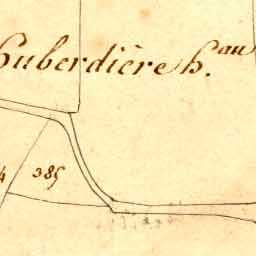 huberdière h.au
4
385